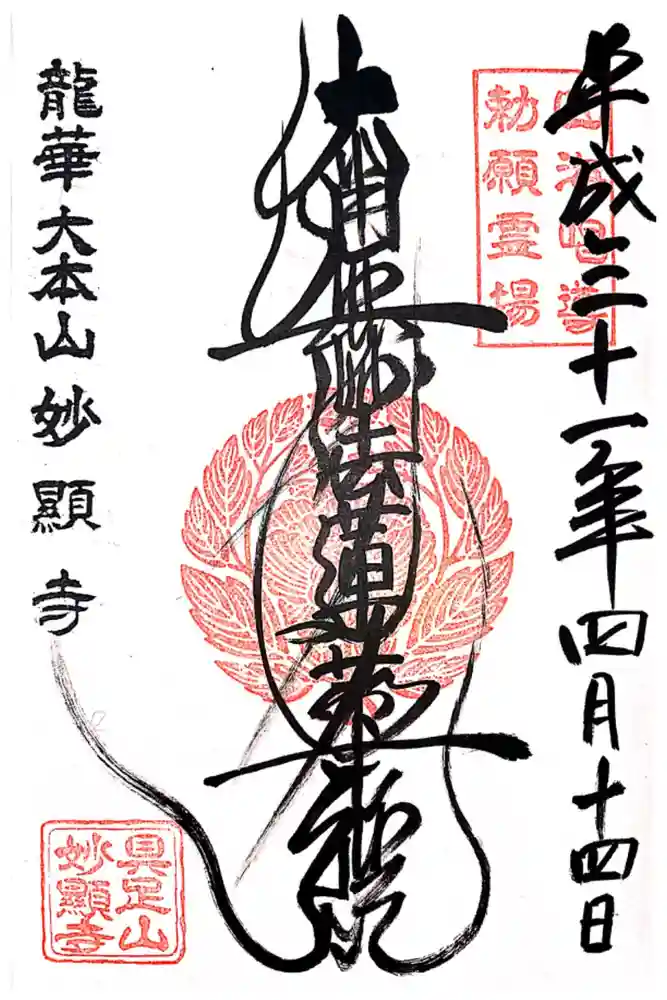 平成二十一年四月十四日
四海唱導
勅願霊場
南無妙法蓮華経
龍華大本山妙顯寺
具足山
妙顯寺